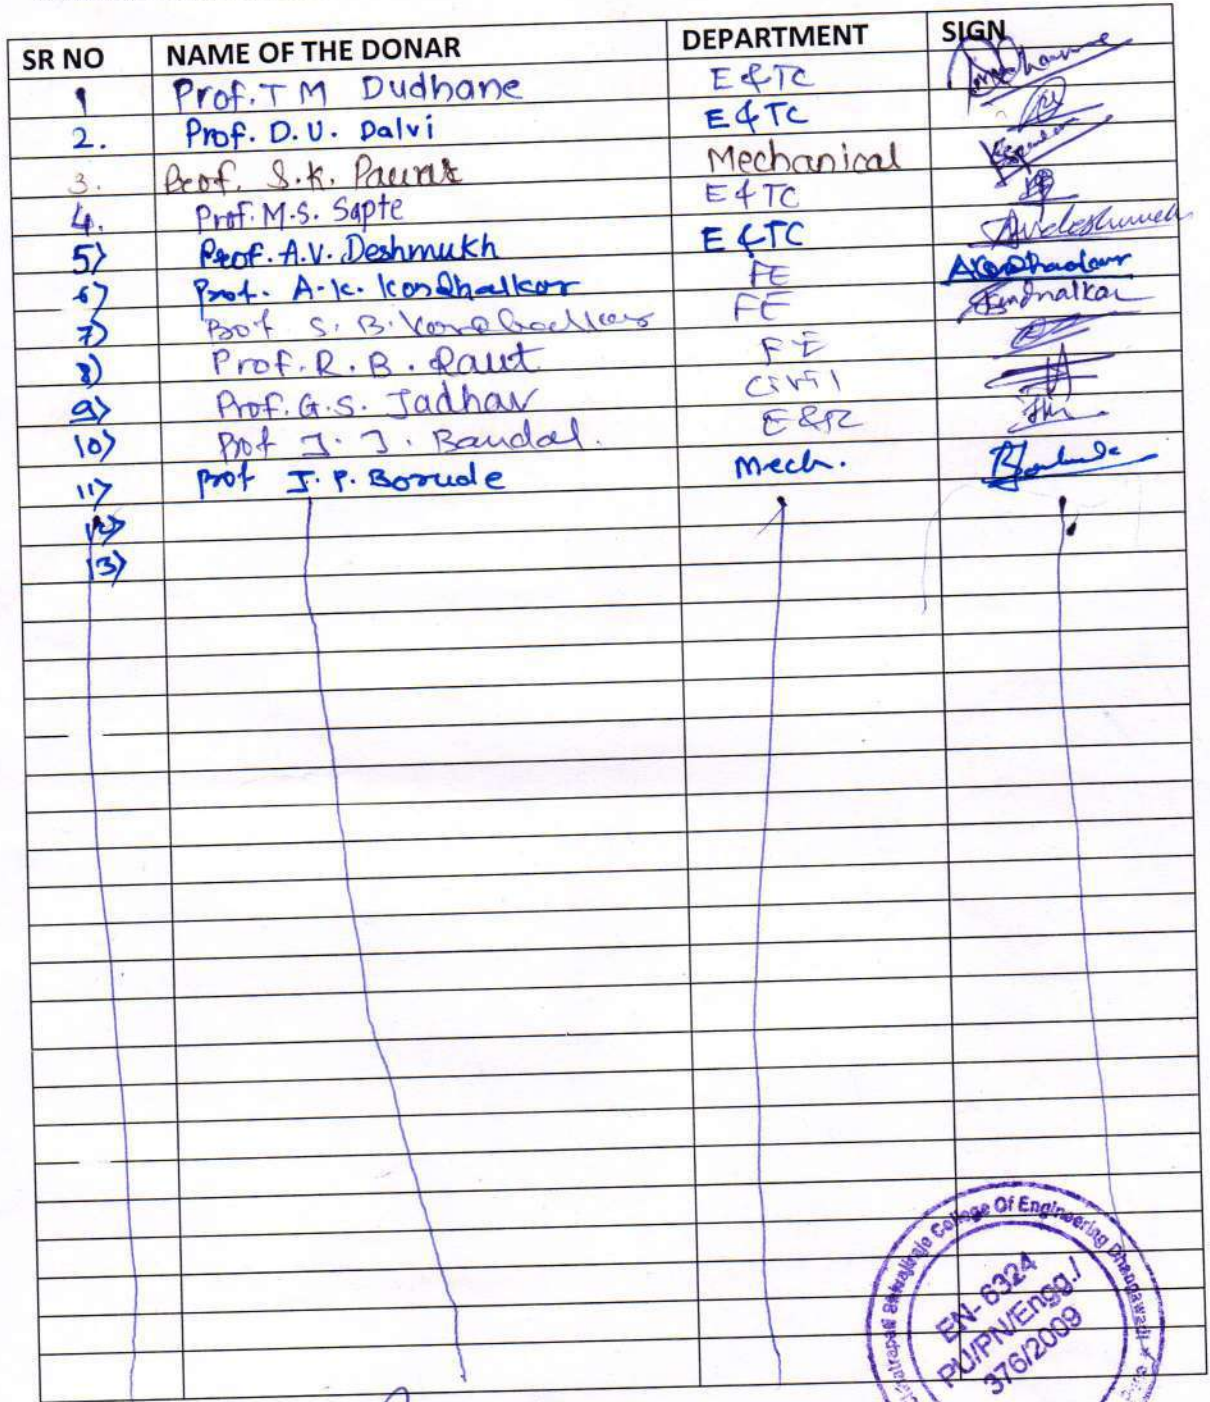 SR NO NAME OF THE DONAR DEPARTMENT SIGN
1 Prof. T M Dudhane E&TC
2. Prof. D. U. Dalvi E&TC
3. Prof. S. K. Mechanical
4. Prof. M.S. Sapte E&TC
5) Prof. A.V. Deshmukh E&TC Avdeshumukh
6) Prof. A. K. Kondhalkar FE
7) Prof S. B. Kondhalkar FE Kondhalkar
8) Prof. R. B. Raut FE
9) Prof. G.S. Jadhav Civil
10) Prof J. J. Bandal.
11) Prof J. P. Borude Mech.
12)
13)
Chhatrapati Shivajiraje College Of Engineering Dhangawadi
EN- 6324
PU/PN/Engg./
376/2009